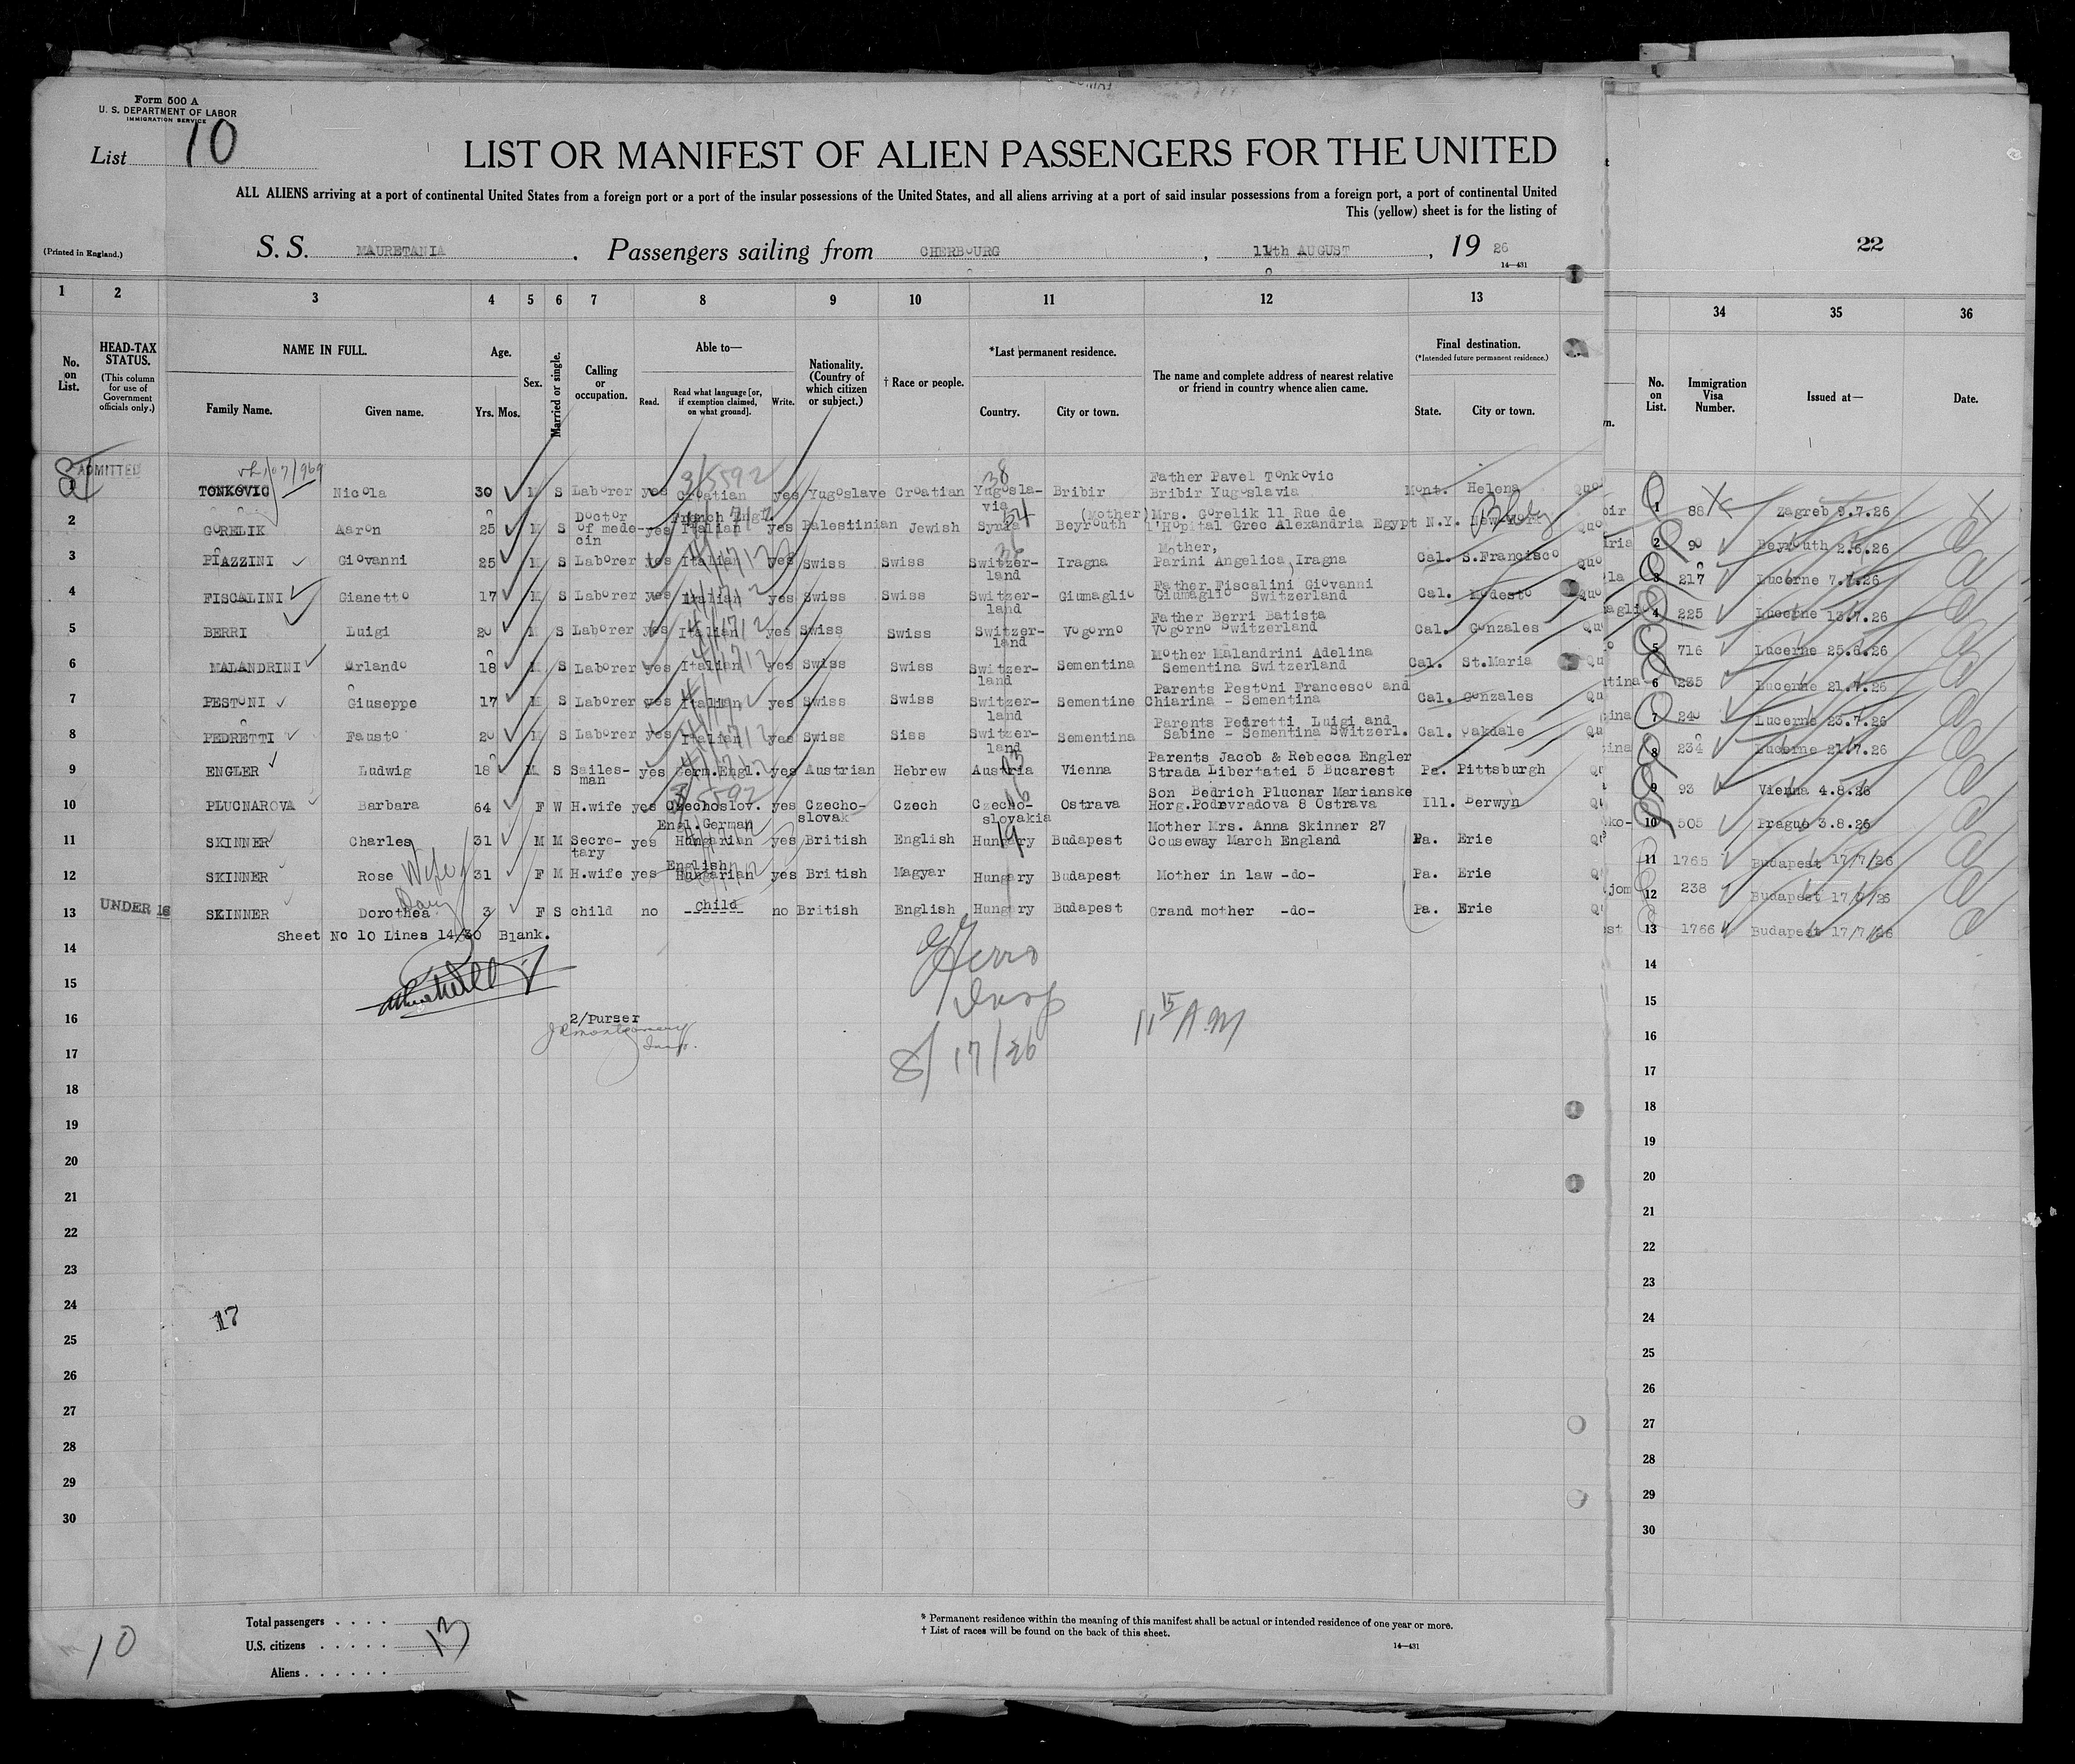 Form 500 A
U. S. DEPARTMENT OF LABOR
IMMIGRATION SERVICE
List 10
LIST OR MANIFEST OF ALIEN PASSENGERS FOR THE UNITED
ALL ALIENS arriving at a port of continental United States from a foreign port or a port of the insular possessions of the United States, and all aliens arriving at a port of said insular possessions from a foreign port, a port of continental United
This (yellow) sheet is for the listing of
(Printed in England.)
S. S. MAURETANIA . Passengers sailing from CHERBOURG , 11th AUGUST , 19 26
14—431
22
1 2 3 4 5 6 7 8 9 10 11 12 13
34 35 36
No. on List.
HEAD-TAX STATUS.
(This column for use of Government officials only.)
NAME IN FULL.
Family Name. Given name.
Age.
Yrs. Mos.
Sex.
Married or single.
Calling or occupation.
Able to—
Read. Read what language [or, if exemption claimed, on what ground]. Write.
Nationality. (Country of which citizen or subject.)
† Race or people.
*Last permanent residence.
Country. City or town.
The name and complete address of nearest relative or friend in country whence alien came.
Final destination.
(*Intended future permanent residence.)
State. City or town.
No. on List.
Immigration Visa Number.
Issued at—
Date.
ADMITTED
1 TONKOVIC Nicola 30 M S Laborer yes Croatian yes Yugoslave Croatian Yugosla-via Bribir Father Pavel Tonkovic Bribir Yugoslavia Mont. Helena Quo
2 GORELIK Aaron 25 M S Doctor of mede-cin yes French Engl. Italian yes Palestinian Jewish Syria Beyrouth (Mother) Mrs. Gorelik 11 Rue de l'Hopital Grec Alexandria Egypt N.Y. New-York Quo
3 PIAZZINI Giovanni 25 M S Laborer yes Italian yes Swiss Swiss Switzer-land Iragna Mother, Parini Angelica, Iragna Cal. S.Francisco Quo
4 FISCALINI Gianetto 17 M S Laborer yes Italian yes Swiss Swiss Switzer-land Giumaglio Father Fiscalini Giovanni Giumaglio Switzerland Cal. Modesto Quo
5 BERRI Luigi 20 M S Laborer yes Italian yes Swiss Swiss Switzer-land Vogorno Father Berri Batista Vogorno Switzerland Cal. Gonzales Qu
6 MALANDRINI Arlando 18 M S Laborer yes Italian yes Swiss Swiss Switzer-land Sementina Mother Malandrini Adelina Sementina Switzerland Cal. St.Maria Qu
7 PESTONI Giuseppe 17 M S Laborer yes Italian yes Swiss Swiss Switzer-land Sementine Parents Pestoni Francesco and Chiarina - Sementina Cal. Gonzales Qu
8 PEDRETTI Fausto 20 M S Laborer yes Italian yes Swiss Siss Switzer-land Sementina Parents Pedretti Luigi and Sabine - Sementina Switzerl. Cal. Oakdale Qu
9 ENGLER Ludwig 18 M S Sailes-man yes Germ.Engl. yes Austrian Hebrew Austria Vienna Parents Jacob & Rebecca Engler Strada Libertatei 5 Bucarest Pa. Pittsburgh Q
10 PLUCNAROVA Barbara 64 F W H.wife yes Czechoslov. yes Czecho-slovak Czech Czecho-slovakia Ostrava Son Bedrich Plucnar Marianske Horg.Podevradova 8 Ostrava Ill. Berwyn Q
11 SKINNER Charles 31 M M Secre-tary yes Engl.German Hungarian yes British English Hungary Budapest Mother Mrs. Anna Skinner 27 Couseway March England Pa. Erie Q
12 SKINNER Rose Wife 31 F M H.wife yes English Hungarian yes British Magyar Hungary Budapest Mother in law -do- Pa. Erie Q
UNDER 16
13 SKINNER Dorothea 3 F S child no Child no British English Hungary Budapest Grand mother -do- Pa. Erie Q
Sheet No 10 Lines 14/30 Blank.
2/Purser
JRMontgomery
Insp.
Insp
8/17/26
11 15 A.M
14
15
16
17
18
19
20
21
22
23
24
25
26
27
28
29
30
17
1 88 Zagreb 9.7.26
2 90 Beyrouth 2.6.26
3 217 Lucerne 7.7.26
4 225 Lucerne 13.7.26
5 716 Lucerne 25.6.26
6 235 Lucerne 21.7.26
7 240 Lucerne 23.7.26
8 234 Lucerne 21.7.26
9 93 Vienna 4.8.26
10 505 Prague 3.8.26
11 1765 Budapest 17/7/26
12 238 Budapest 17/7/26
13 1766 Budapest 17/7/26
14
15
16
17
18
19
20
21
22
23
24
25
26
27
28
29
30
10
Total passengers . . . .
U.S. citizens . . . . .
Aliens . . . . . .
13
* Permanent residence within the meaning of this manifest shall be actual or intended residence of one year or more.
† List of races will be found on the back of this sheet.
14—431